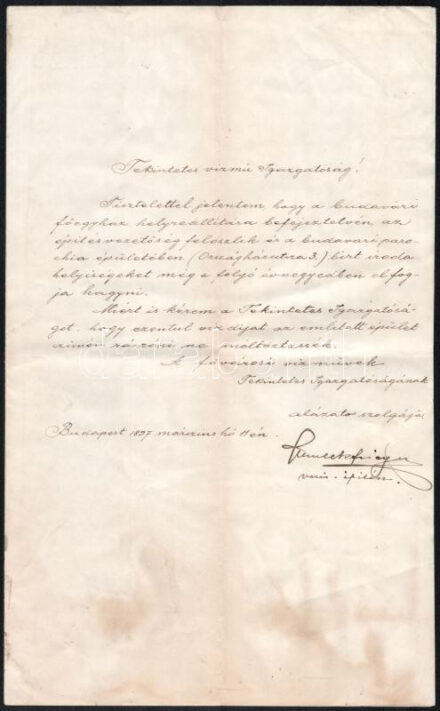 Tekintetes vizmű Igazgatóság!
Tisztelettel jelentem hogy a budavári
főegyház helyreállitára befejeztetvén, az
épitésvezetőség feloszlik és a budavári paro-
chia épületében (Országházutcza 3,) birt iroda
helyiségeket még e folyó évnegyedben el fog-
ja hagyni.
Miért is kérem a Tekintetes Igazgatósá-
got, hogy ezentul vizdijat az emlitett épület
czimén róni ne méltóztassék.
A fővárosi viz művek
Tekintetes Igazgatóságának
alázatos szolgája
Budapest 1897 márczius hó 11én.
épitész.